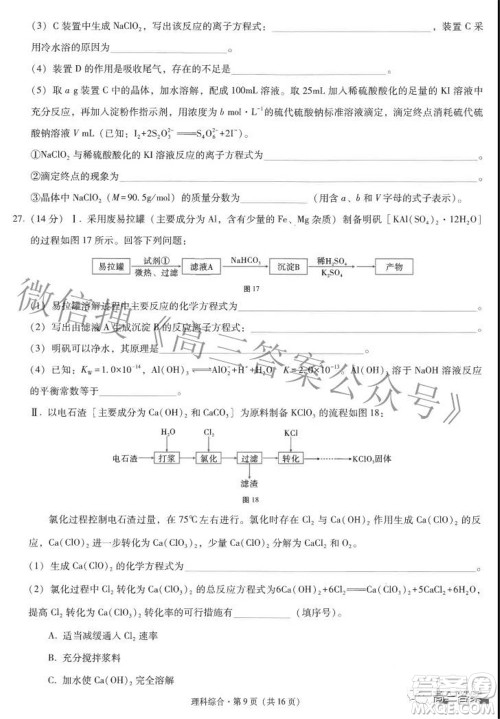 （3）C 装置中生成 NaClO₂，写出该反应的离子方程式：，装置 C 采
用冷水浴的原因为。
（4）装置 D 的作用是吸收尾气，存在的不足是。
（5）取 a g 装置中的晶体，加水溶解，配成 100mL 溶液。取 25mL 加入硫酸酸化的足量的 KI 溶液中
充分反应，再加入淀粉作指示剂，用浓度为 b mol·L⁻¹的硫代硫酸钠标准溶液滴定，滴定终点消耗硫代硫
酸钠溶液 V mL（已知：I₂+2S₂O₃²⁻══S₄O₆²⁻+2I⁻）。
①NaClO₂ 与稀硫酸酸化的 KI 溶液反应的离子方程式为。
②滴定终点的现象为。
③晶体中 NaClO₂（M=90.5g/mol）的质量分数为（用含 a、b 和 V 字母的式子表示）。
27.（14 分）Ⅰ. 采用废易拉罐（主要成分为 Al，含有少量的 Fe、Mg 杂质）制备明矾［KAl(SO₄)₂·12H₂O］
的过程如图 17 所示。回答下列问题：
易拉罐 试剂① 微热、过滤 滤液A NaHCO₃ 沉淀B 稀H₂SO₄ K₂SO₄ 产物
图 17
（1）易拉罐溶解过程中主要反应的化学方程式为。
（2）写出由滤液 A 生成沉淀 B 的反应离子方程式。
（3）明矾可以净水，其原理是。
（4）已知：Kw=1.0×10⁻¹⁴，Al(OH)₃⇌AlO₂⁻+H⁺+H₂O K=2.0×10⁻¹³。Al(OH)₃ 溶于 NaOH 溶液反应
的平衡常数等于。
Ⅱ. 以电石渣［主要成分为 Ca(OH)₂ 和 CaCO₃］为原料制备 KClO₃ 的流程如图 18：
H₂O Cl₂ KCl
电石渣 打浆 氯化 过滤 转化 KClO₃固体
滤渣
图 18
氯化过程控制电石渣过量，在 75℃左右进行。氯化时存在 Cl₂ 与 Ca(OH)₂ 作用生成 Ca(ClO)₂ 的反
应，Ca(ClO)₂ 进一步转化为 Ca(ClO₃)₂，少量 Ca(ClO)₂ 分解为 CaCl₂ 和 O₂。
（1）生成 Ca(ClO)₂ 的化学方程式为。
（2）氯化过程中 Cl₂ 转化为 Ca(ClO₃)₂ 的总反应方程式为6Ca(OH)₂+6Cl₂══Ca(ClO₃)₂+5CaCl₂+6H₂O，
提高 Cl₂ 转化为 Ca(ClO₃)₂ 的转化率的可行措施有（填序号）。
A. 适当减缓通入 Cl₂ 速率
B. 充分搅拌浆料
C. 加水使 Ca(OH)₂ 完全溶解
理科综合·第 9 页（共 16 页）
微信搜《高三答案公众号》